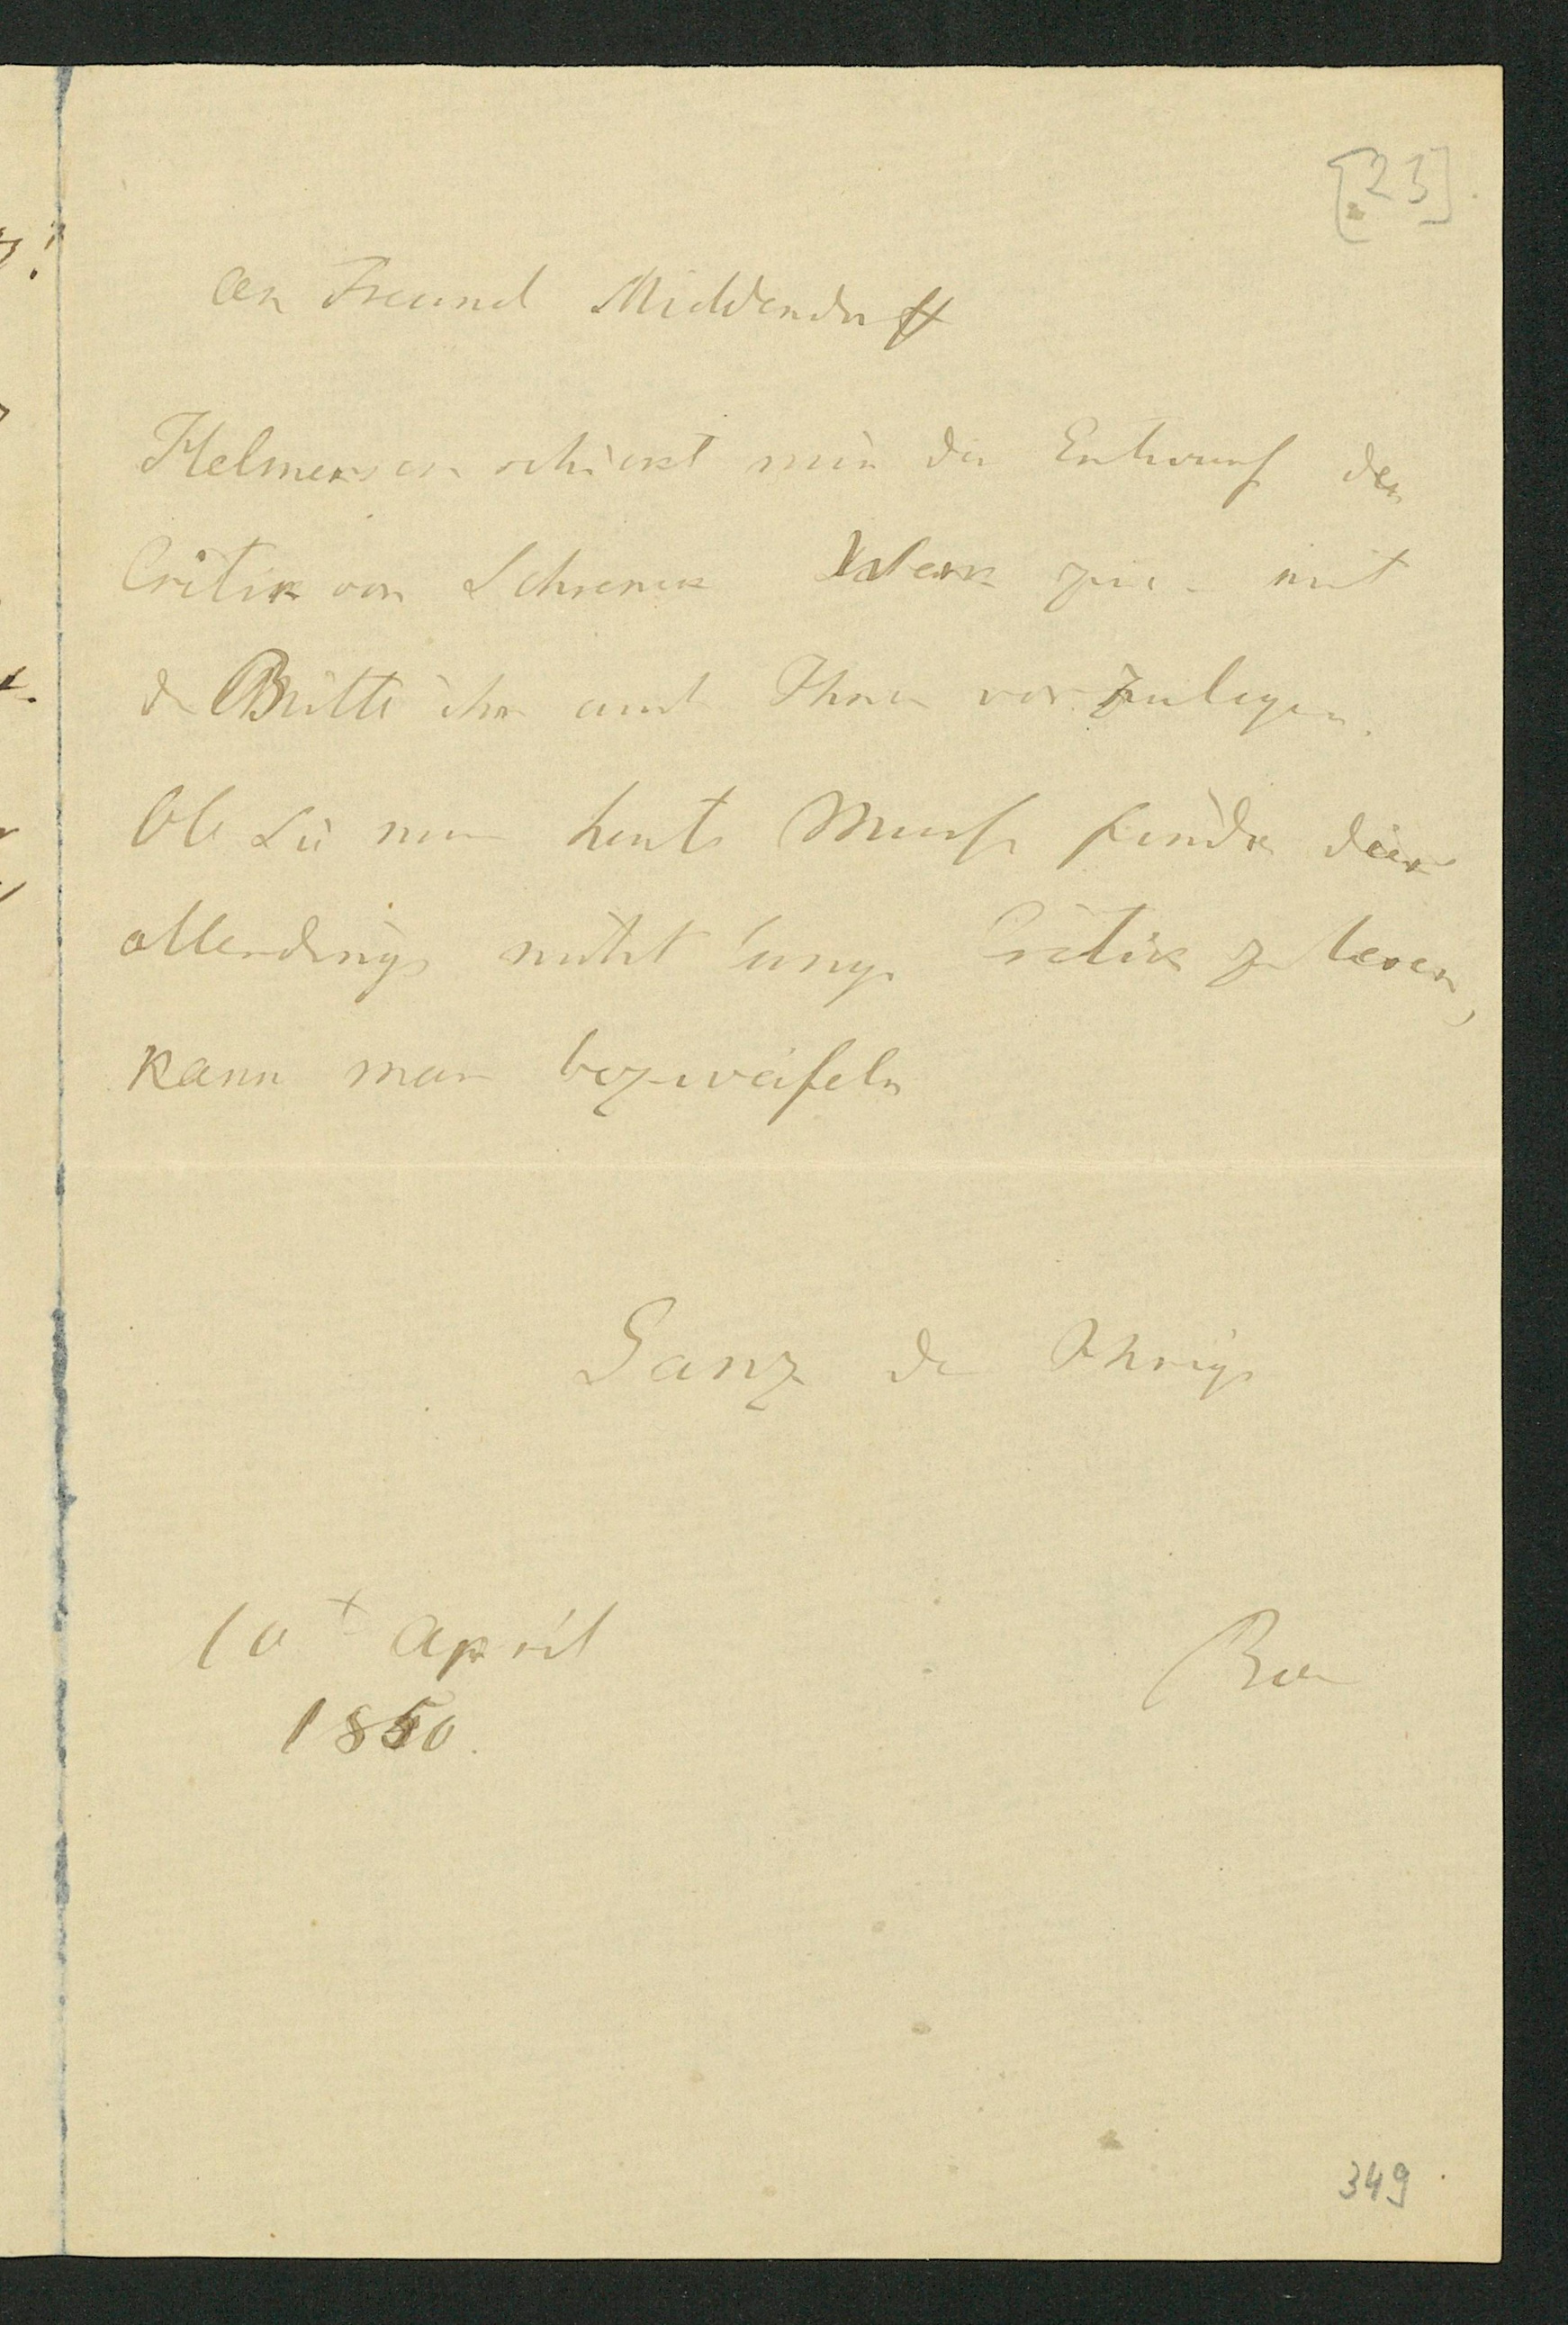 [23]
An Freund Middendorff
Helmersen schickt mir den Entwurf der
Critik von Schrenck Werk zu - mit
der Bitte ihn auch Ihnen vorzulegen.
Ob Sie nun heute Musse finden die
allerdings nicht lange Critik zu lesen,
kann man bezweifeln
Ganz der Ihrige
10t April
1850.
Baer
349